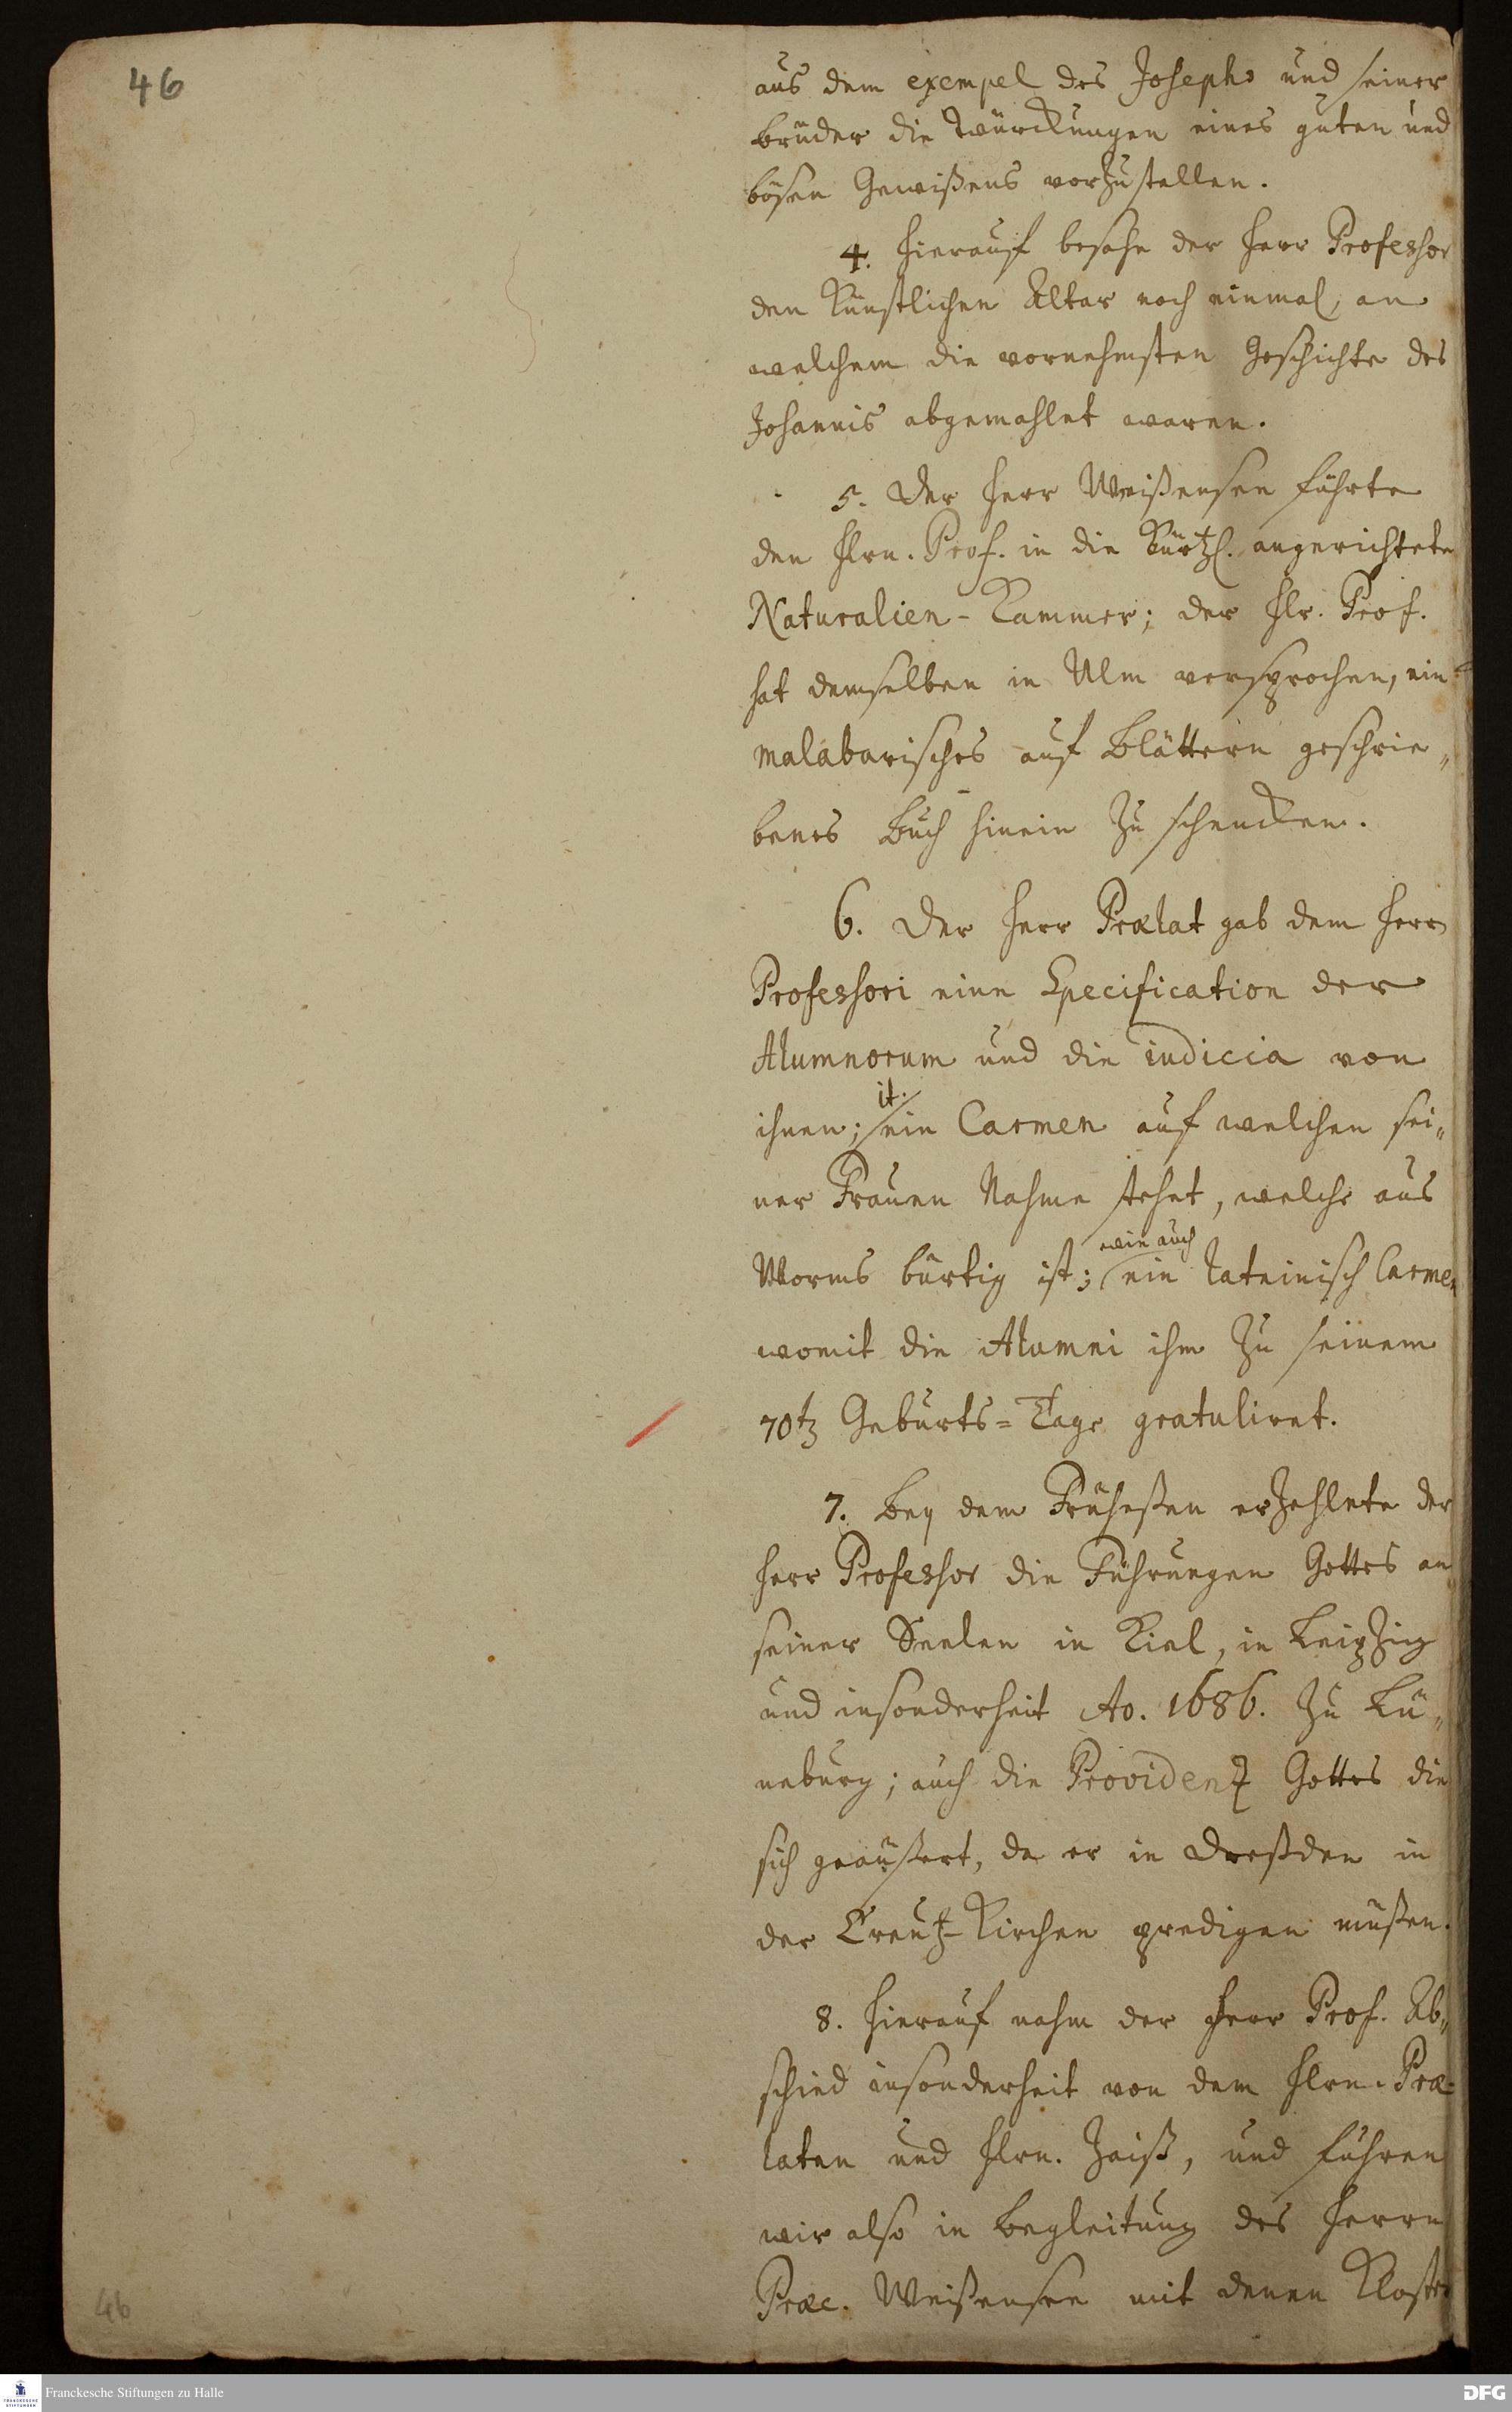 46
aus dem exempel des Josephs und seiner
Brüder die Würckungen eines guten und
bösen Gewißens vorzustellen.
4. Hierauf besahe der Herr Professor
den Künstlichen Altar noch einmal, an
welchem die vornehmsten Geschichte des
Johannis abgemahlet waren.
5. Der Herr Weißensee führte
den Hrn. Prof. in die kürtzl. angerichtete
Naturalien-Kammer; der Hr. Prof.
hat demselben in Ulm versprochen, ein
malabarisches auf Blättern geschrie-
benes Buch hinein zu schencken.
6. Der Herr Prælat gab dem Herrn
Professori eine Specification der
Alumnorum und die iudicia von
ihnen; it. ein Carmen auf welchen sei-
ner Frauen Nahme stehet, welche aus
Worms bürtig ist; wie auch ein lateinisch Carmen
womit die Alumni ihm zu seinem
70tz Geburts-Tage gratuliret.
7. Bey dem Früheßen erzehlete der
Herr Professor die Führungen Gottes an
seiner Seelen in Kiel, in Leipzig
und insonderheit Ao. 1686. zu Lü-
neburg; auch die Providenz Gottes die
sich geäußert, da er in Dreßden in
der Creutz-Kirchen predigen müßen.
8. Hierauf nahm der Herr Prof. Ab-
schied insonderheit von dem Hrn. Præ-
laten und Hrn. Zeiß, und führen
wir also in Begleitung des Herrn
Præc. Weißensee mit denen Kloster
46
Franckesche Stiftungen zu Halle
DFG